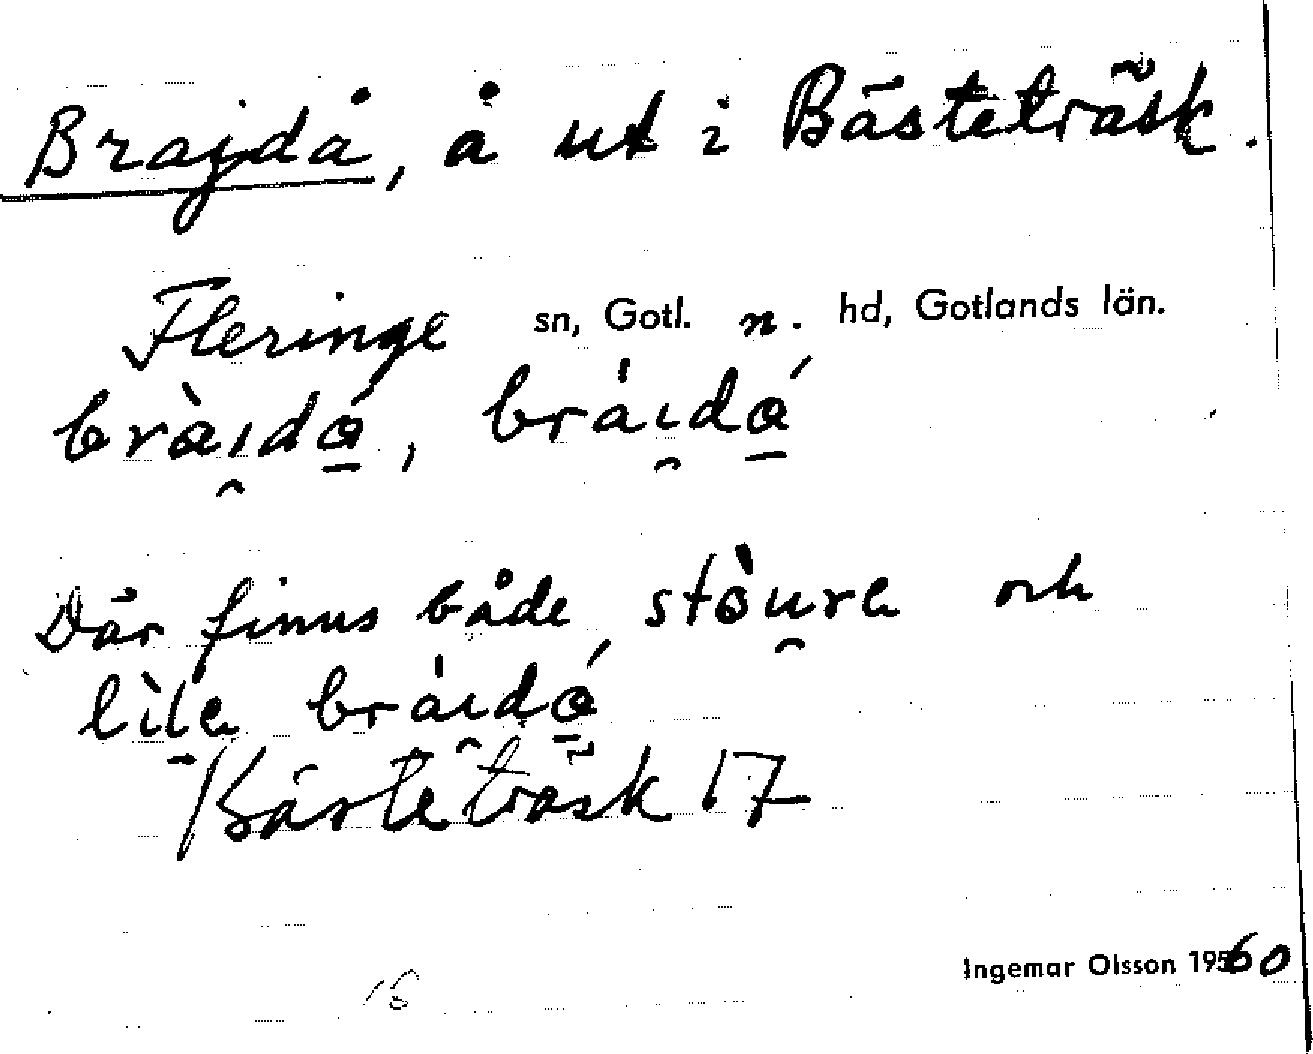 Brajdå, å ut i Bästeträsk.
Fleringe sn, Gotl. n. hd, Gotlands län.
bràı̯dá̱, bráı̯dá̱
Där finns både stòu̯ra och
lìḷa bráı̯dá̱
Bästeträsk 17
16
Ingemar Olsson 1960